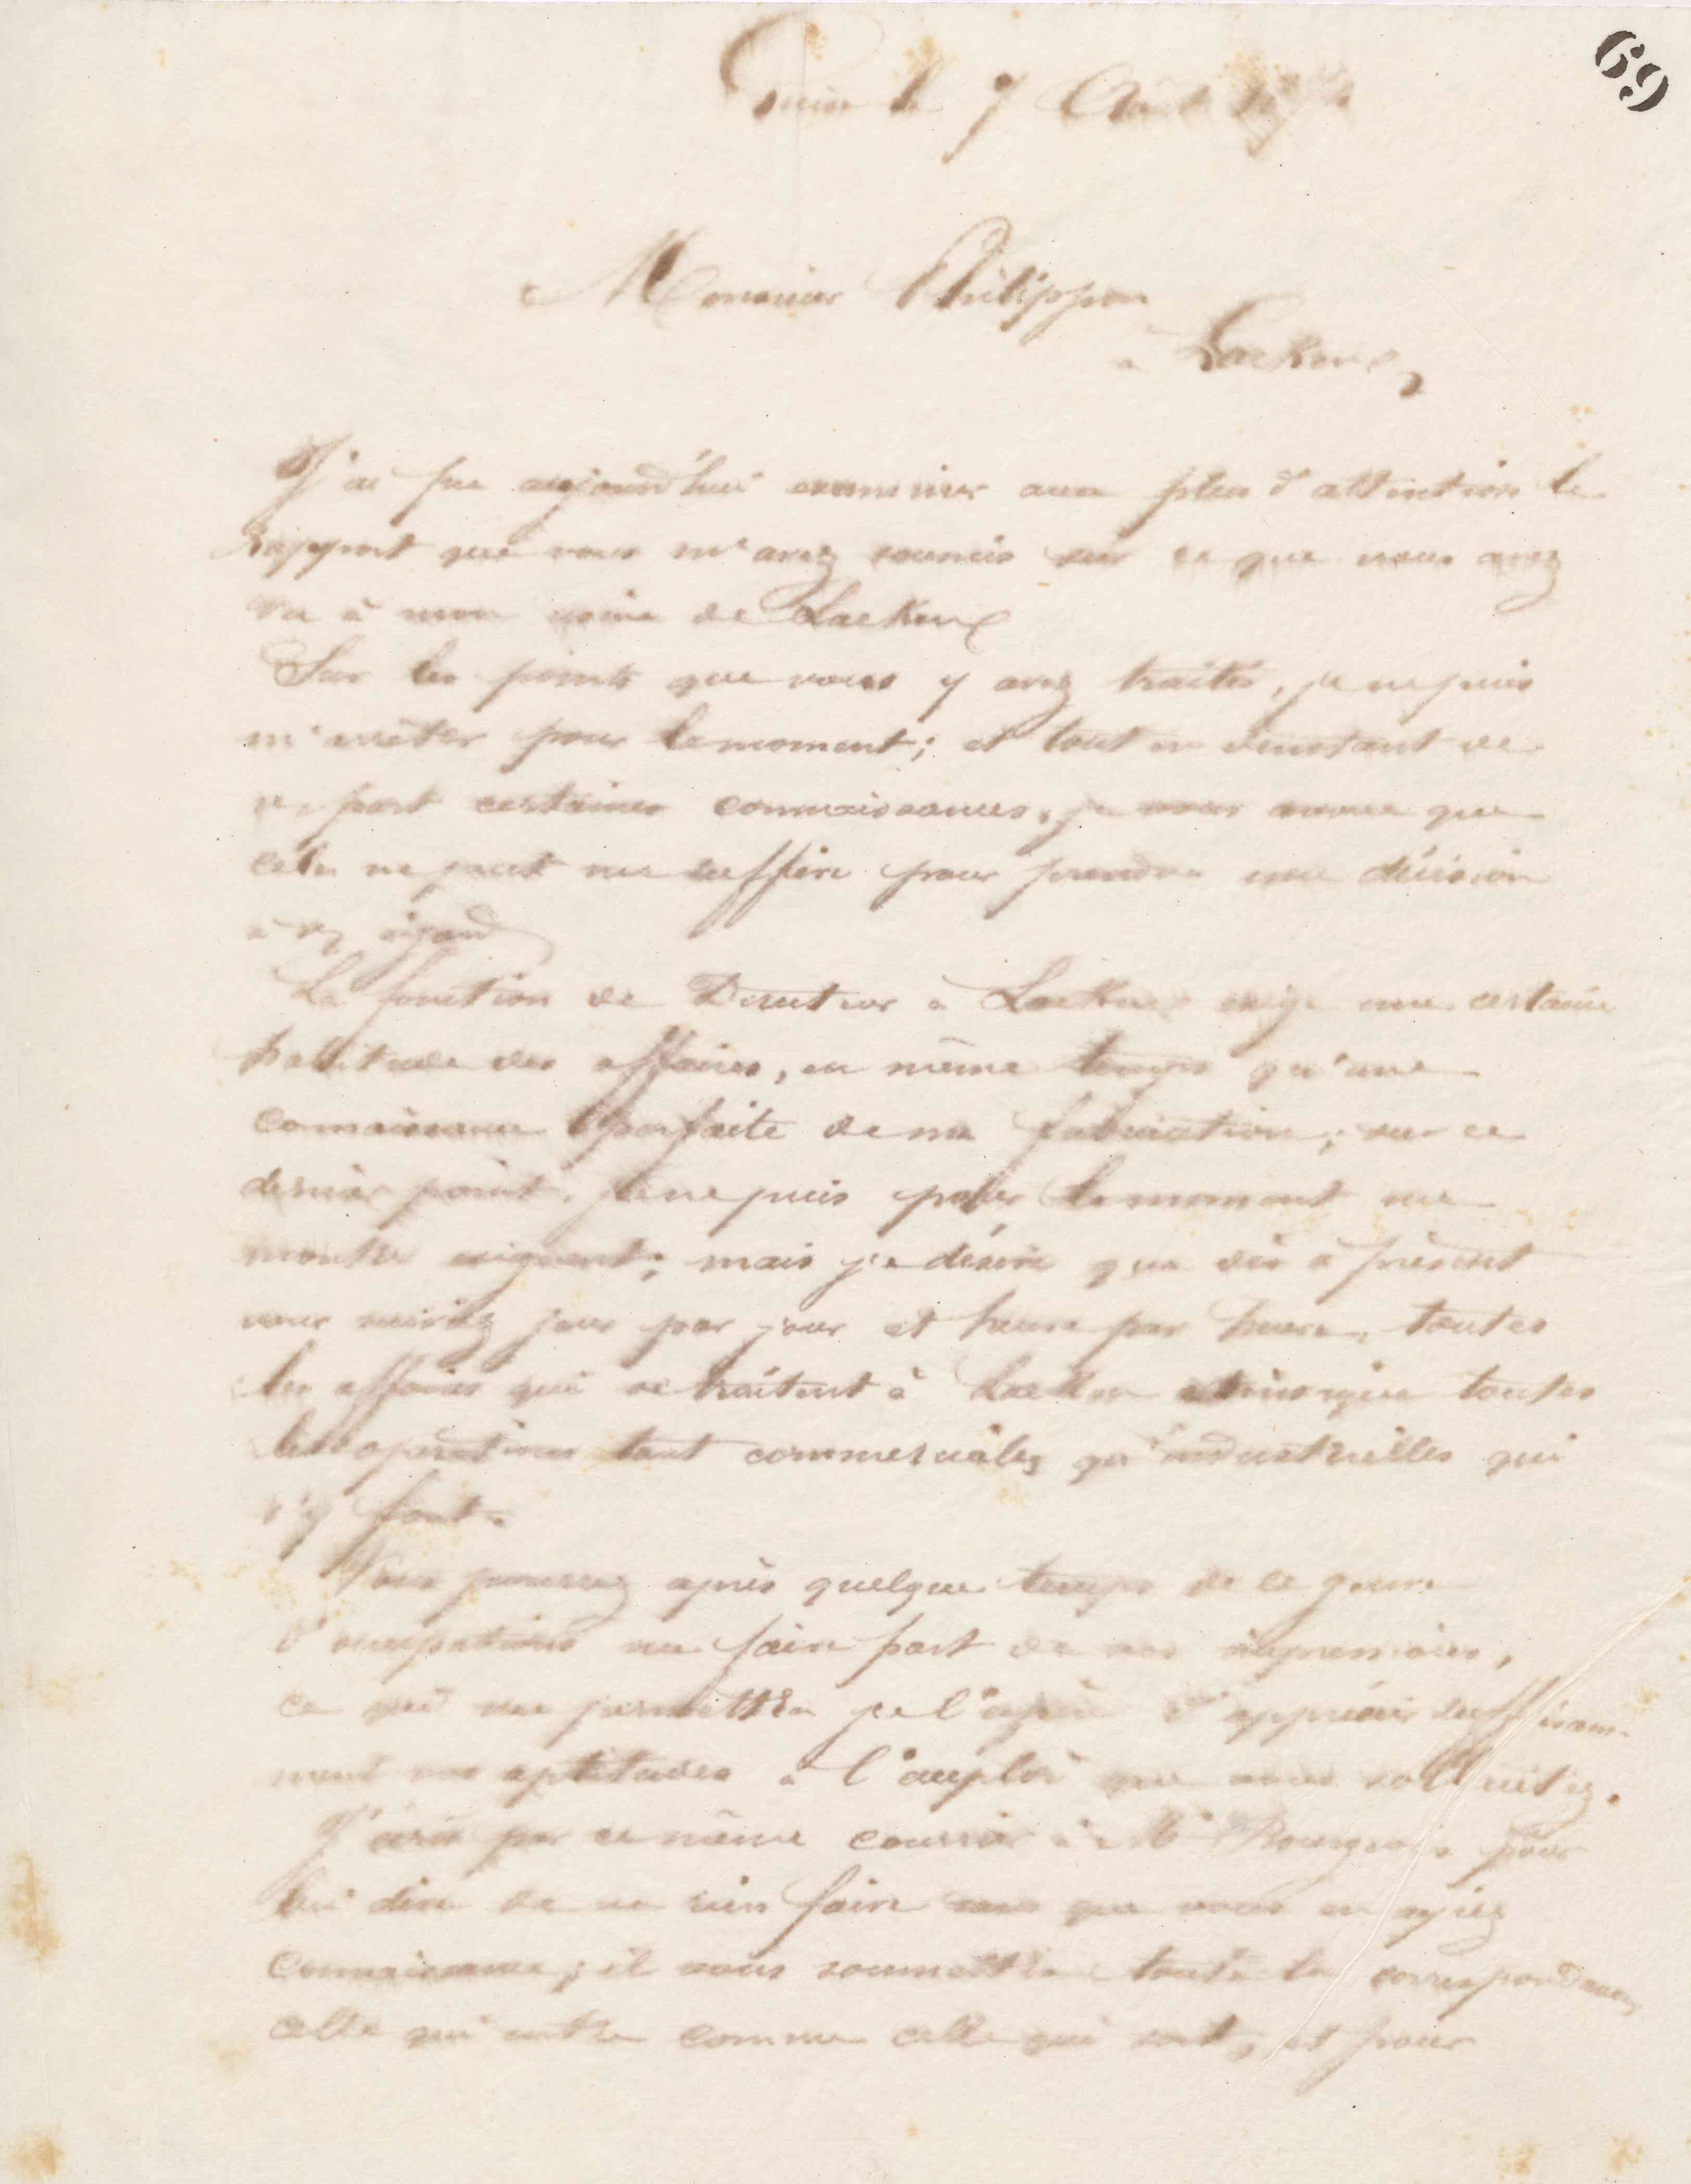 69
le 7 Août
Monsieur Philippon
à Laeken
J'ai pu aujourd'hui examiner avec plus d'attention le
rapport que vous m'avez soumis sur ce que vous avez
vu à mon usine de Laeken
Sur les points que vous y avez traités, je ne puis
m'arrêter pour le moment; et tout en dénotant de
votre part certaines connaissances, je vous avoue que
cela ne peut me suffire pour prendre une décision
à cet égard
La fonction de Directeur à Laeken exige une certaine
habitude des affaires, en même temps qu'une
connaissance parfaite de ma fabrication; sur ce
dernier point, je ne puis pour le moment me
montrer exigeant; mais je désire que dès à présent
vous suiviez jour par jour et heure par heure, toutes
les affaires qui se traitent à Laeken ainsi que toutes
les opérations tant commerciales qu'industrielles qui
s'y font.
Vous pourrez après quelque temps de ce genre
d'occupations me faire part de vos impressions,
ce qui me permettra je l'espère d'apprécier suffisam-
ment vos aptitudes à l'emploi que vous sollicitez.
J'écris par ce même courrier à Mr Bourgeois pour
lui dire de ne rien faire sans que vous en ayiez
connaissance; il vous soumettra toute la correspondance,
celle qui entre comme celle qui sort, et pour